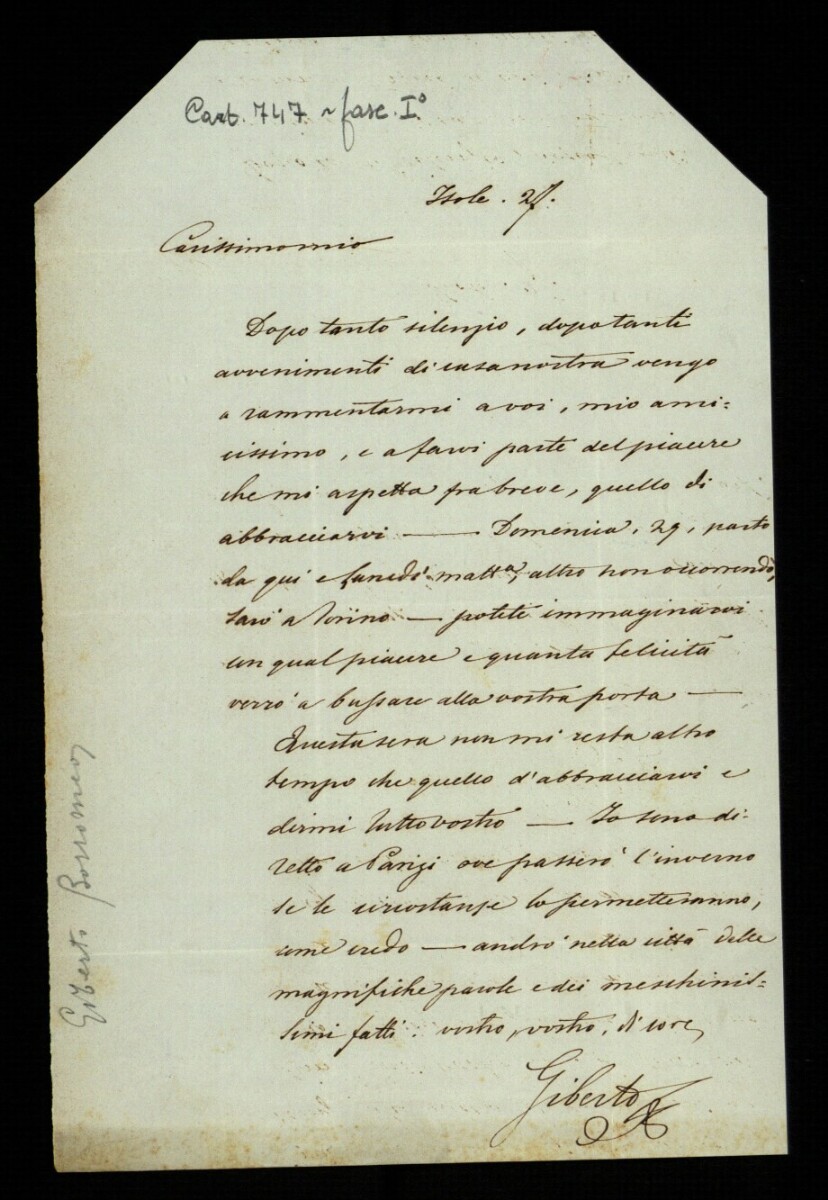 Cart. 747 ~ fasc. I°
Isole. 27.
Carissimo mio
Dopo tanto silenzio, dopo tanti
avvenimenti di casa nostra vengo
a rammentarmi a voi, mio ami=
cissimo, e a farvi parte del piacere
che mi aspetta fra breve, quello di
abbracciarvi — Domenica, 29, parto
da qui e lunedì matt.a, altro non occorrendo,
sarò a Torino — potete immaginarvi
con qual piacere e quanta felicità
verrò a bussare alla vostra porta —
Questa sera non mi resta altro
tempo che quello d'abbracciarvi e
dirmi tutto vostro — Io sono di=
retto a Parigi ove passerò l'inverno
se le circostanze lo permetteranno,
come credo — andrò nella città delle
magnifiche parole e dei meschinis=
simi fatti. vostro, vostro, di core,
Giberto
Giberto Borromeo